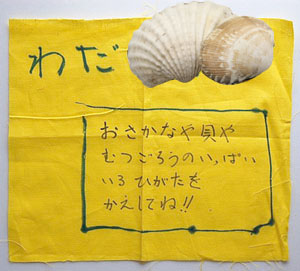 わだ
おさかなや貝や
むつごろうのいっぱい
いる ひがたを
かえしてね!!